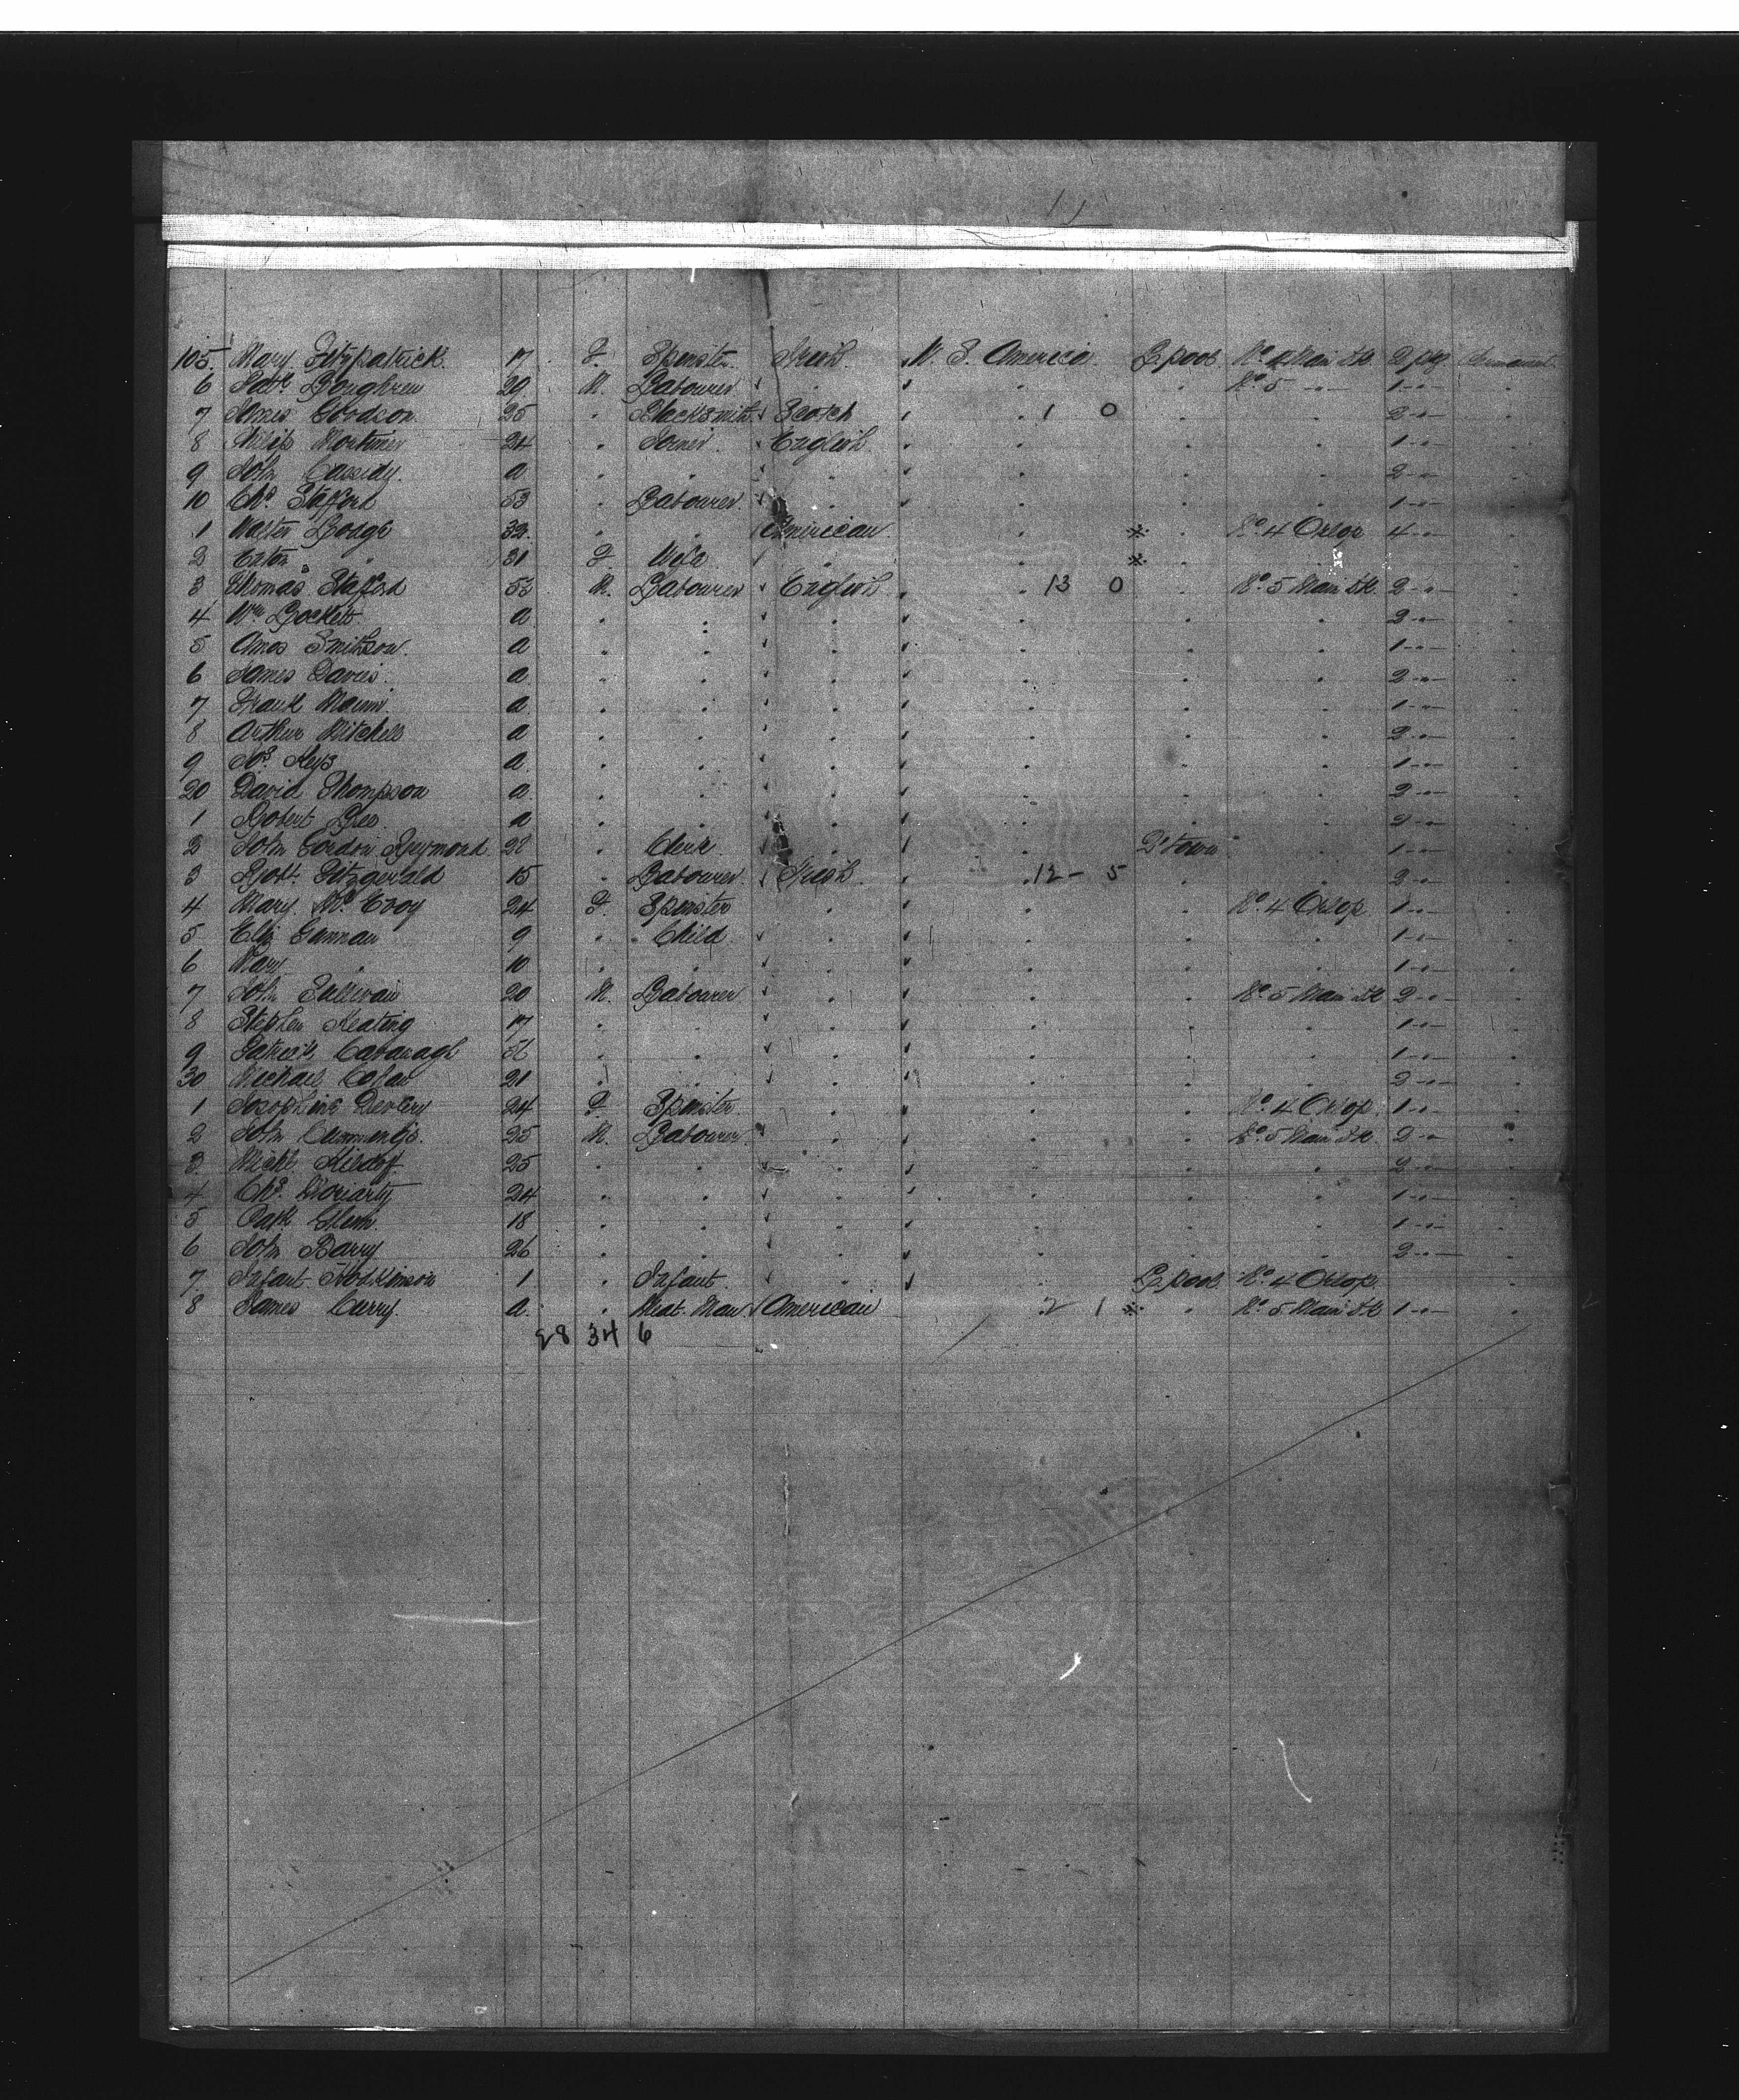 105. Mary Fitzpatrick. 17 F. Spinster. Irish. U. S. America L'pool Nº 4 Main Dk. 2 pkgs Permanent
6 Patk Loughren 29 M. Labourer " " " Nº 5 -"- 1 -"-
7 James Goodson. 25 " Blacksmith Scotch " 1 0 " " 2 -"-
8 Philip Mortimer 24 " Joiner English. " " " 1 -"-
9 John Cassidy. a " " " " " " 2 -"-
10 Chs. Stafford 53 " Labourer. " " " " 1 -"-
1 Walter Lodge 32. " " American. " * " Nº 4 Orlop 4 -"-
2 " 31 F. Wife " " *
3 Thomas Stafford 53 M. Labourer English 13 0 " Nº 5 Main Dk 2 -"-
4 Wm Lockett a " " " " " " 2 -"-
5 Amos Smithson. a " " " " " " 1 -"-
6 James Davies. a " " " " " " 2 -"-
7 Frank Mannin. a " " " " " " 1 -"-
8 Arthur Mitchell a " " " " " " 2 -"-
9 Keys a " " " " " " 1 -"-
20 David Thompson a " " " " " " 2 -"-
1 Robert a " " " " " " 2 -"-
2 John Gordon Raymond. 22 " Clerk. " " Q'town " 1 -"-
3 Robt. Fitzgerald 15 " Labourer. Irish. " 12 - 5 " " 2 -"-
4 Mary Mc Evoy 24 F. Spinster " " " Nº 4 Orlop 1 -"-
5 Eliz Gannan 9 " Child. " " " " 1 -"-
6 Mary " 10 " " " " " " 1 -"-
7 John Sullivan 20 M. Labourer " " " Nº 5 Main Dk 2 -"-
8 Stephen Keating 17 " " " " " " 1 -"-
9 Patrick Cavanagh " " " " " " 1 -"-
30 Michael 21 " " " " " " 2 -"-
1 Josephine Devery 24 F. Spinster " " " Nº 4 Orlop. 1 -"-
2 John Cummings. 25 M. Labourer. " " " Nº 5 Main Dk. 2 -"-
3 Michl 25 " " " " " " 2 -"-
4 Chs. Moriarty 24 " " " " " " 1 -"-
5 Patk Glenn. 18 " " " " " " 1 -"-
6 John Barry 26 " " " " " " 2 -"-
7 Infant Hodkinson 1 " Infant. " " L'pool Nº 4 Orlop.
8 James Curry. a. " Meat Man American 2 1 * " Nº 5 Main Dk 1 -"-
28 34 6